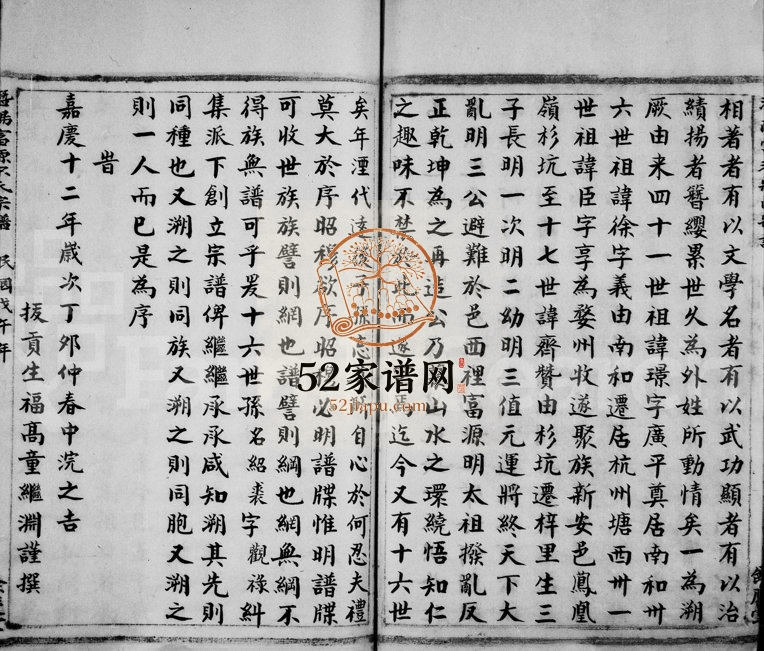 相著者有以文學名者有以武功顯者有以治
績揚者簪纓累世久為外姓所動情矣一為溯
厥由来四十一世祖諱璟字廣平奠居南和卅
六世祖諱徐字義由南和遷居杭州塘西卅一
世祖諱臣字享為婺州牧遂聚族新安邑鳳凰
嶺杉坑至十七世諱齊贊由杉坑遷梓里生三
子長明一次明二幼明三值元運將終天下大
亂明三公避難於邑西裡富源明太祖撥亂反
正乾坤為之再造公乃 山水之環繞悟知仁
之趣味不禁於此而遂 焉迄今又有十六世
矣年湮代遠後子孫忘 自心於何忍夫禮
莫大於序昭穆欲序昭穆必明譜牒惟明譜牒
可收世族族譬則網也譜譬則綱也網無綱不
得族無譜可乎爰十六世孫名紹裘字觀祿糾
集派下創立宗譜俾繼繼承承咸知溯其先則
同種也又溯之則同族又溯之則同胞又溯之
則一人而已是為序
旹
嘉慶十二年歲次丁卯仲春中浣之吉
拔貢生福髙童繼淵謹撰
宗譜 民國戊午年
52家谱网
52jiapu.com